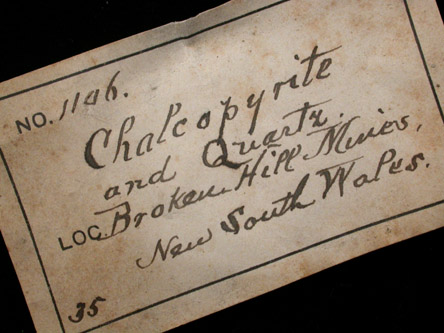 NO. 1146.
Chalcopyrite
and Quartz.
LOC. Broken Hill Mines,
New South Wales.
35